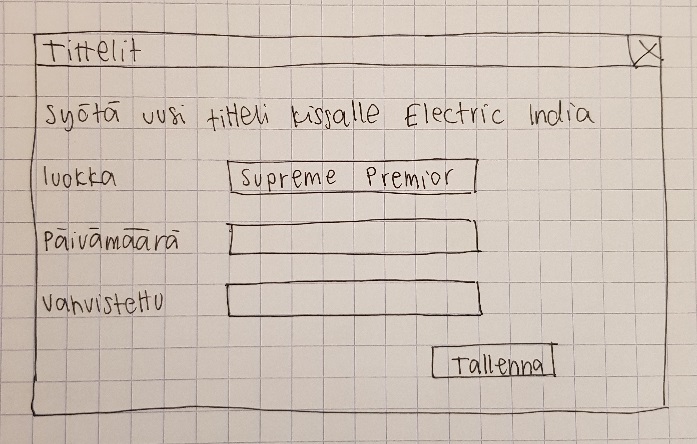 Tittelit X
Syötä uusi titteli kissalle Electric India
luokka Supreme Premior
Päivämäärä
vahvistettu
Tallenna